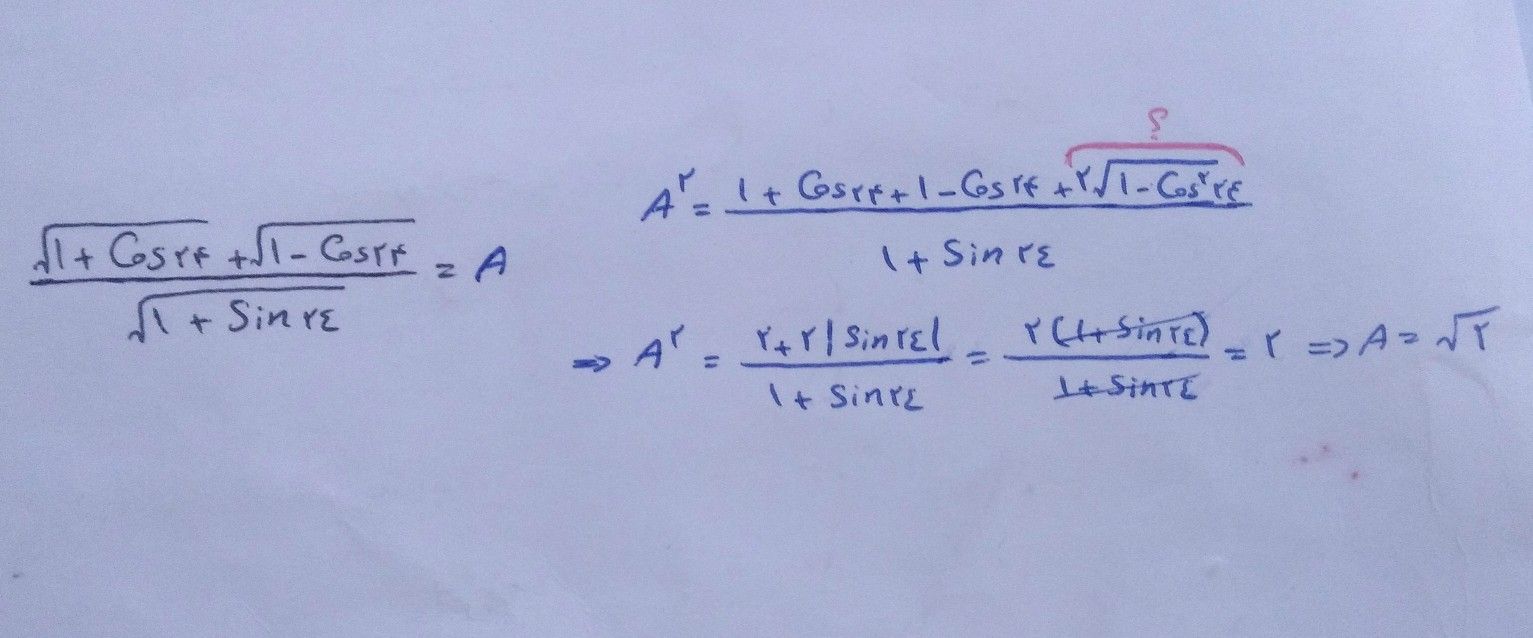 ؟
(√(1 + Cos۲۴) + √(1 - Cos۲۴)) / √(1 + Sin ۲٤) = A
A^۲ = (1 + Cos۲۴ + 1 - Cos ۲۴ + ۲√(1 - Cos^۲ ۲٤)) / (1 + Sin ۲٤)
⇒ A^۲ = (۲ + ۲|Sin۲٤|) / (1 + Sin۲٤) = ۲(1 + Sin۲٤) / (1 + Sin۲٤) = ۲ ⇒ A = √۲